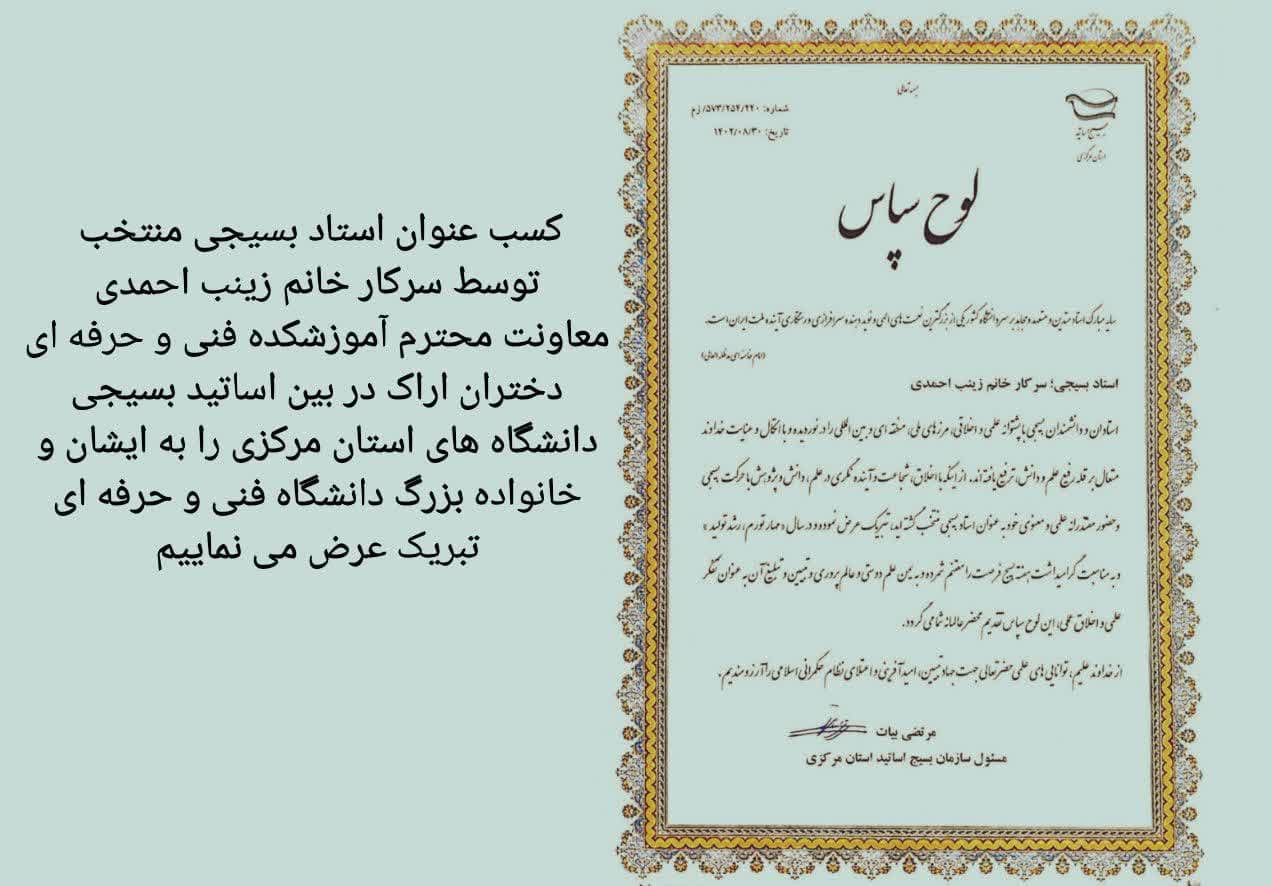 کسب عنوان استاد بسیجی منتخب
توسط سرکار خانم زینب احمدی
معاونت محترم آموزشکده فنی و حرفه ای
دختران اراک در بین اساتید بسیجی
دانشگاه های استان مرکزی را به ایشان و
خانواده بزرگ دانشگاه فنی و حرفه ای
تبریک عرض می نماییم
بسمه تعالی
شماره: ۵۷۳/۲۵۴/۲۲۰/زم
تاریخ: ۱۴۰۲/۰۸/۳۰
بسیج اساتید
استان مرکزی
لوح سپاس
سایه مبارک استاد متدین و متعهد و مجاهد بر سر دانشگاه کشور یکی از بزرگترین نعمت های الهی و نوید دهنده سرافرازی و رستگاری آینده ملت ایران است.
(امام خامنه ای مدظله العالی)
استاد بسیجی؛ سرکار خانم زینب احمدی
استادان و دانشمندان بسیجی با پشتوانه علمی و اخلاقی، مرزهای ملی، منطقه ای و بین المللی را در نوردیده و با اتکال و عنایت خداوند
متعال بر قله رفیع علم و دانش، ترفیع یافته اند. از اینکه با اخلاق، شجاعت و آینده نگری در علم، دانش و پژوهش با حرکت بسیجی
و حضور مقتدرانه علمی و معنوی خود به عنوان استاد بسیجی منتخب گشته اید، تبریک عرض نموده و در سال «مهار تورم، رشد تولید»
و به مناسبت گرامیداشت هفته بسیج فرصت را مغتنم شمرده و به یمن علم دوستی و عالم پروری و تبیین و تبلیغ آن به عنوان تفکر
علمی و اخلاق عملی، این لوح سپاس تقدیم محضر عالمانه شما می گردد.
از خداوند علیم، توانایی های علمی حضرتعالی جهت جهاد تبیین، امیدآفرینی و اعتلای نظام حکمرانی اسلامی را آرزومندیم.
مرتضی بیات
مسئول سازمان بسیج اساتید استان مرکزی